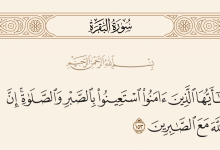 سُورَةُ البَقَرَةِ
بِسْمِ اللَّهِ الرَّحْمَٰنِ الرَّحِيمِ
يَٰٓأَيُّهَا ٱلَّذِينَ ءَامَنُوا۟ ٱسْتَعِينُوا۟ بِٱلصَّبْرِ وَٱلصَّلَوٰةِ ۚ إِنَّ
ٱللَّهَ مَعَ ٱلصَّٰبِرِينَ ١٥٣